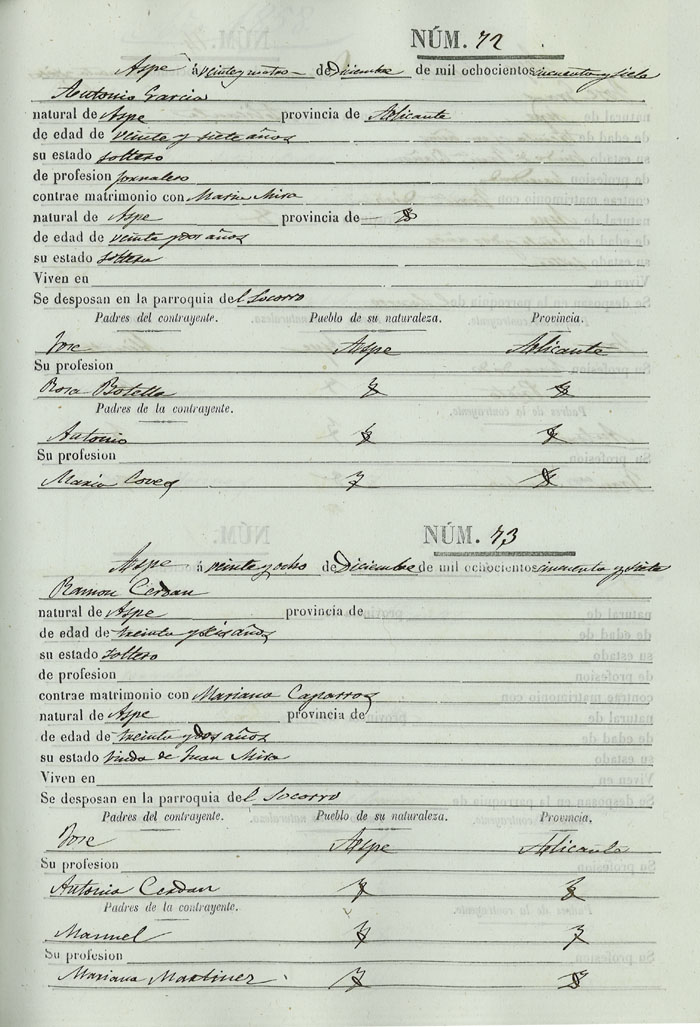 NÚM. 72
Aspe á veinteycuatro de Diciembre de mil ochocientos cincuenta y siete
Antonio Garcia
natural de Aspe provincia de Alicante
de edad de veinte y siete años
su estado soltero
de profesion jornalero
contrae matrimonio con Maria Mira
natural de Aspe provincia de
de edad de veinte y dos años
su estado soltera
Viven en
Se desposan en la parroquia del Socorro
Padres del contrayente. Pueblo de su naturaleza. Provincia.
Jose Aspe Alicante
Su profesion
Rosa Botella
Padres de la contrayente.
Antonio
Su profesion
Maria
NÚM. 73
Aspe á veinte y ocho de Diciembre de mil ochocientos cincuenta y siete
Ramon Cerdan
natural de Aspe provincia de
de edad de treinta y seis años
su estado soltero
de profesion
contrae matrimonio con Mariana Caparros
natural de Aspe provincia de
de edad de treinta y dos años
su estado viuda de Juan Mira
Viven en
Se desposan en la parroquia del Socorro
Padres del contrayente. Pueblo de su naturaleza. Provincia.
Jose Aspe Alicante
Su profesion
Antonia Cerdan
Padres de la contrayente.
Manuel
Su profesion
Mariana Martinez